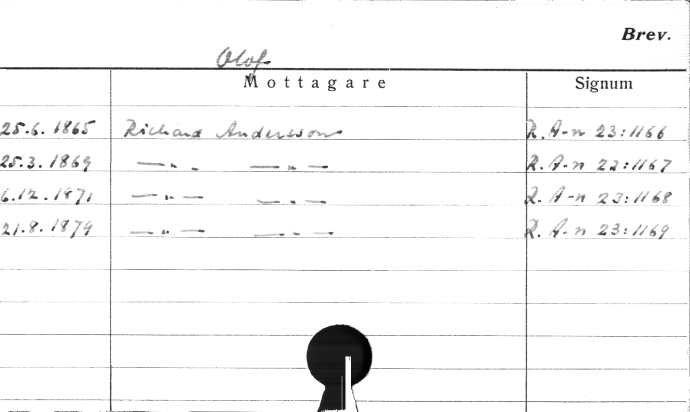 Brev.
Olof
Mottagare Signum
25.6. 1865 Richard Andersson R. A-n 23:1166
25.3. 1869 —"— —"— R. A-n 23:1167
6.12. 1871 —"— —"— R. A-n 23:1168
21.8. 1879 —"— —"— R. A-n 23:1169